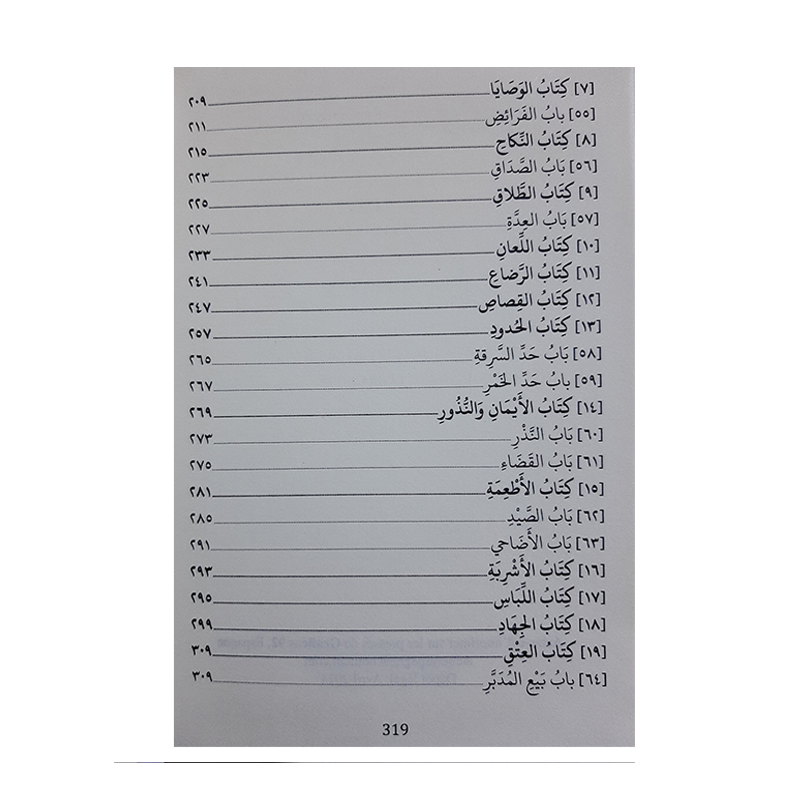 [٧] كِتَابُ الوَصَايَا ٢٠٩
[٥٥] بابُ الفَرَائِضِ ٢١١
[٨] كِتَابُ النِّكَاحِ ٢١٥
[٥٦] بَابُ الصَّدَاقِ ٢٢٣
[٩] كِتَابُ الطَّلَاقِ ٢٢٥
[٥٧] بَابُ العِدَّةِ ٢٢٧
[١٠] كِتَابُ اللِّعانِ ٢٣٣
[١١] كِتَابُ الرَّضاعِ ٢٤١
[١٢] كِتَابُ القِصاصِ ٢٤٧
[١٣] كِتَابُ الحُدودِ ٢٥٧
[٥٨] بَابُ حَدِّ السَّرِقةِ ٢٦٥
[٥٩] بابُ حَدِّ الخَمْرِ ٢٦٧
[١٤] كِتَابُ الأَيْمَانِ وَالنُّذُورِ ٢٦٩
[٦٠] بَابُ النَّذْرِ ٢٧٣
[٦١] بَابُ القَضَاءِ ٢٧٥
[١٥] كِتَابُ الأَطْعِمَةِ ٢٨١
[٦٢] بَابُ الصَّيْدِ ٢٨٥
[٦٣] بَابُ الأَضَاحي ٢٩١
[١٦] كِتَابُ الأَشْرِبَةِ ٢٩٣
[١٧] كِتَابُ اللِّبَاسِ ٢٩٥
[١٨] كِتَابُ الجِهَادِ ٢٩٩
[١٩] كِتَابُ العِتْقِ ٣٠٩
[٦٤] بابُ بَيْعِ المُدَبَّرِ ٣٠٩
319